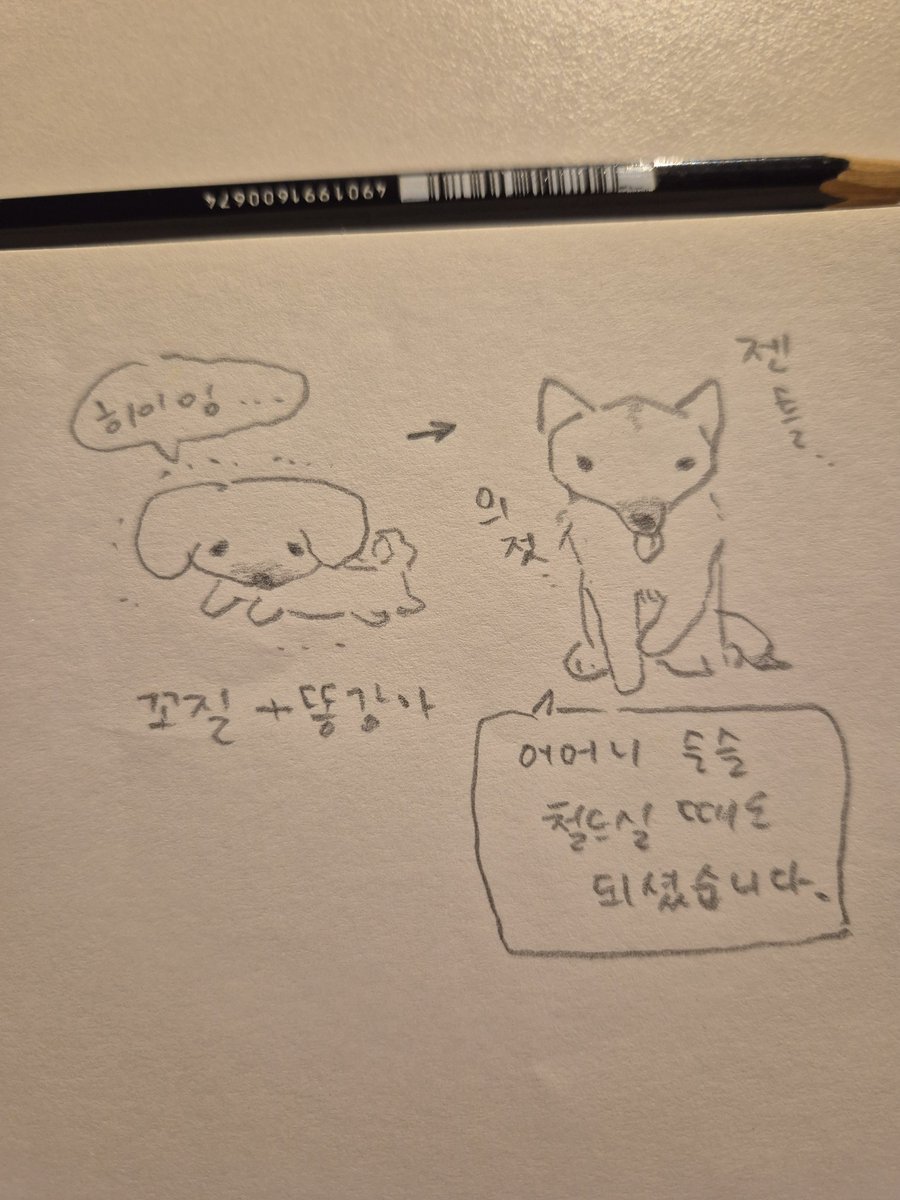 4901991600674
히이잉...
꼬질+똥강아
젠
틀...
의
젓...
어머니 슬슬
철드실 때도
되셨습니다.